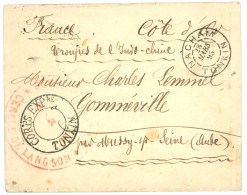 France Côte d'
Troupes de l'Indo-Chine
Monsieur Charles Lemmel
Gommeville
par Mussy-sur-Seine (Aube)
BAC-HAT
TONKIN
CORPS EXP
TONKIN
LANGSON